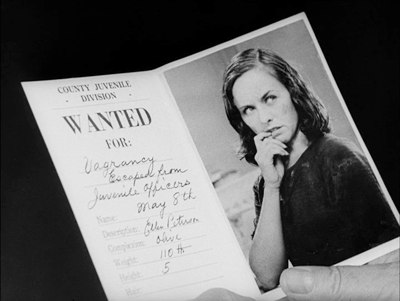 COUNTY JUVENILE
· DIVISION ·
WANTED
FOR:
Vagrancy
Escaped from
Juvenile Officers
May 8th
Name: Ellen Peterson
Description:
Complexion: Olive
Weight: 110 lb
Height: 5
Hair: